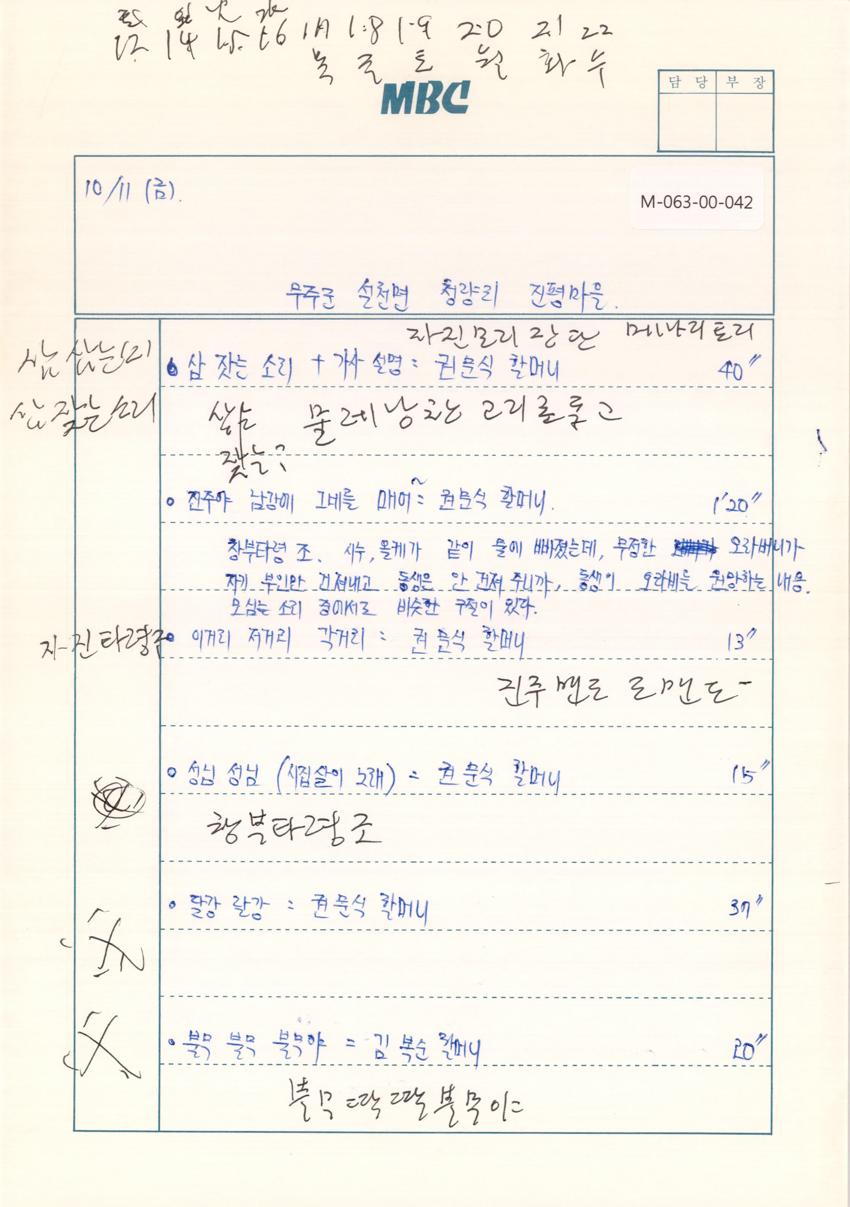 14 15 16 17 18 19 20 21 22
목 금 토 월 화 수
MBC
담 당 부 장
10/11 (금).
M-063-00-042
무주군 설천면 청량리 진평마을.
자진모리장단 메나리토리
삼 삼는 소리
삼 잣는 소리 + 가사 설명 : 권문식 할머니 40"
삼 잣는 소리
삼는 물레
잣는?
진주야 남강에 그네를 매어~ : 권문식 할머니. 1'20"
창부타령 조. 시누, 올케가 같이 물에 빠졌는데, 무정한 오라버니가
자기 부인만 건져내고 동생은 안 건져 주니까, 동생이 오라비를 원망하는 내용.
모심는 소리 중에서도 비슷한 구절이 있다.
자진타령조
이거리 저거리 각거리 : 권문식 할머니 13"
진주맨도 도맨도
성님 성님 (시집살이 노래) : 권문식 할머니 15"
창부타령조
달강 달강 : 권문식 할머니 37"
불무 불무 불무야 : 김복순 할머니 20"
불무 딱딱 불무야